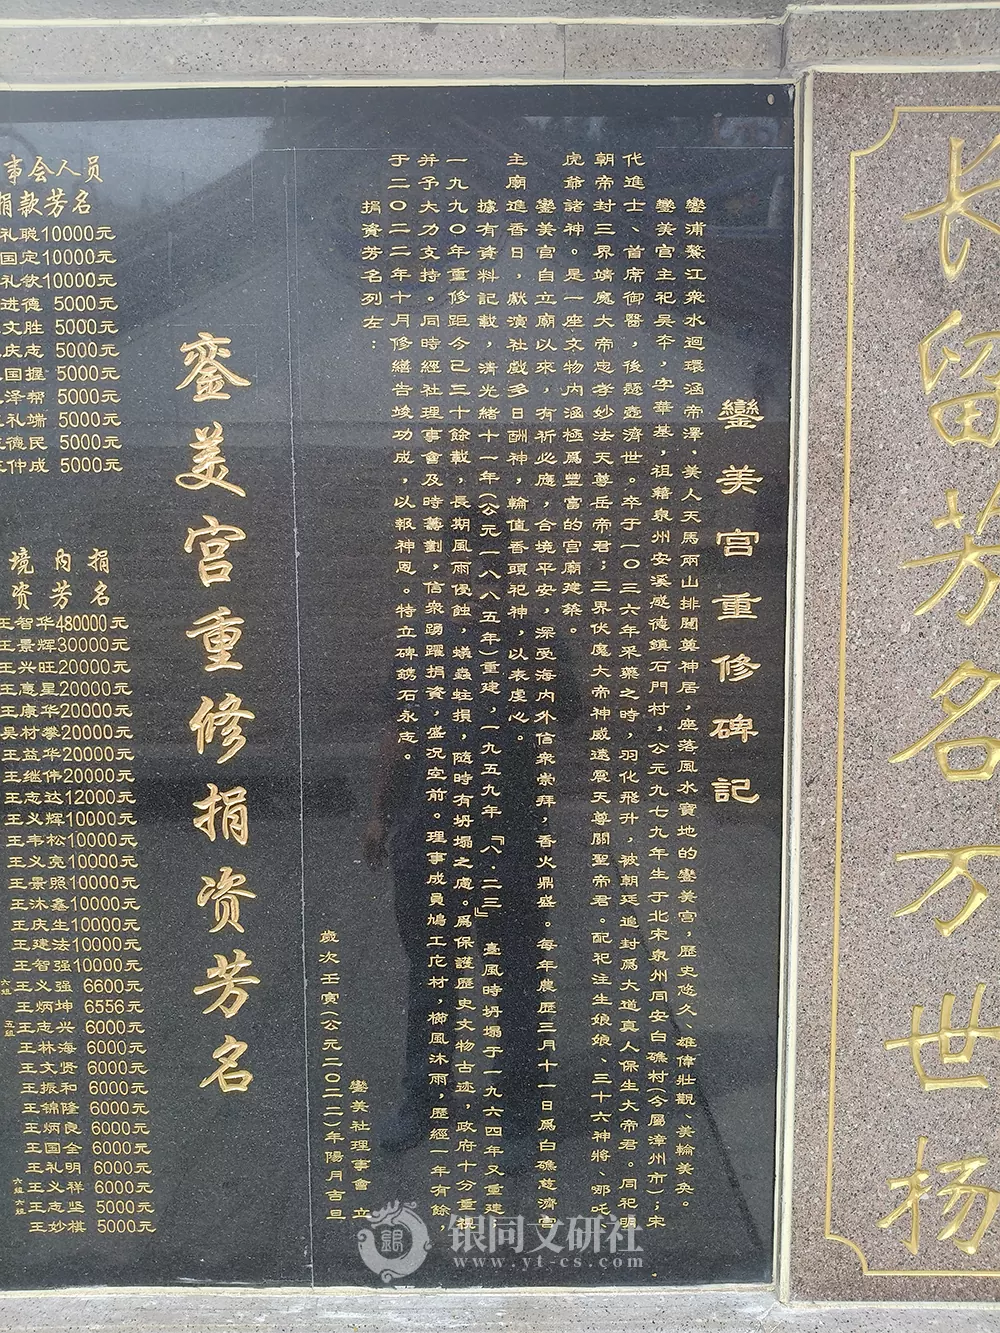 长留芳名万世扬
鑾美宫重修碑記
鑾浦鰲江衆水迴環涵帝澤，美人天馬兩山排闥奠神居，座落風水寶地的鑾美宫，歷史悠久、雄偉壯觀、美輪美奂。
鑾美宫主祀吴夲，字華基，祖籍泉州安溪感德鎮石門村，公元九七九年生于北宋泉州同安白礁村(今屬漳州市)；宋
代進士、首席御醫，後懸壺濟世。卒于一〇三六年采藥之時，羽化飛升，被朝廷追封爲大道真人保生大帝君。同祀明
朝帝封三界靖魔大帝忠孝妙法天尊岳帝君；三界伏魔大帝神威遠震天尊關聖帝君。配祀注生娘娘、三十六神將、哪吒、
虎爺諸神。是一座文物内涵極爲豐富的宫廟建築。
鑾美宫自立廟以來，有祈必應，合境平安，深受海内外信衆崇拜，香火鼎盛。每年農歷三月十一日爲白礁慈濟宫
主廟進香日，獻演社戲多日酬神，輪值香頭祀神，以表虔心。
據有資料記載，清光緒十一年(公元一八八五年)重建，一九五九年『八·二三』臺風時坍塌于一九六四年又重建；
一九九〇年重修距今已三十餘載，長期風雨侵蝕，蟻蟲蛀損，隨時有坍塌之處。爲保護歷史文物古迹，政府十分重視
并予大力支持。同時經社理事會及時籌劃，信衆踴躍捐資，盛况空前。理事成員鳩工庀材，櫛風沐雨，歷經一年有餘，
于二〇二二年十月修繕告竣功成，以報神恩。特立碑鐫石永志。
捐資芳名列左：
鑾美社理事會 立
歲次壬寅(公元二〇二二)年陽月吉旦
銮美宫重修捐资芳名
事会人员
捐款芳名
礼聪10000元
国定10000元
礼钦10000元
进德 5000元
文胜 5000元
庆志 5000元
国握 5000元
泽帮 5000元
礼端 5000元
德民 5000元
仲成 5000元
境内捐
资芳名
王智华480000元
王景辉30000元
王兴旺20000元
王惠星20000元
王康华20000元
吴材攀20000元
王益华20000元
王继伟20000元
王志达12000元
王义辉10000元
王韦松10000元
王义亮10000元
王景照10000元
王沐鑫10000元
王庆生10000元
王建法10000元
王智强10000元
六组 王义强 6600元
王炳坤 6556元
五组 王志兴 6000元
王林海 6000元
王文贤 6000元
王振和 6000元
王锦隆 6000元
王炳良 6000元
王国全 6000元
王礼明 6000元
六组 王义祥 6000元
六组 王志坚 5000元
王妙棋 5000元
银同文研社
www.yt-cs.com